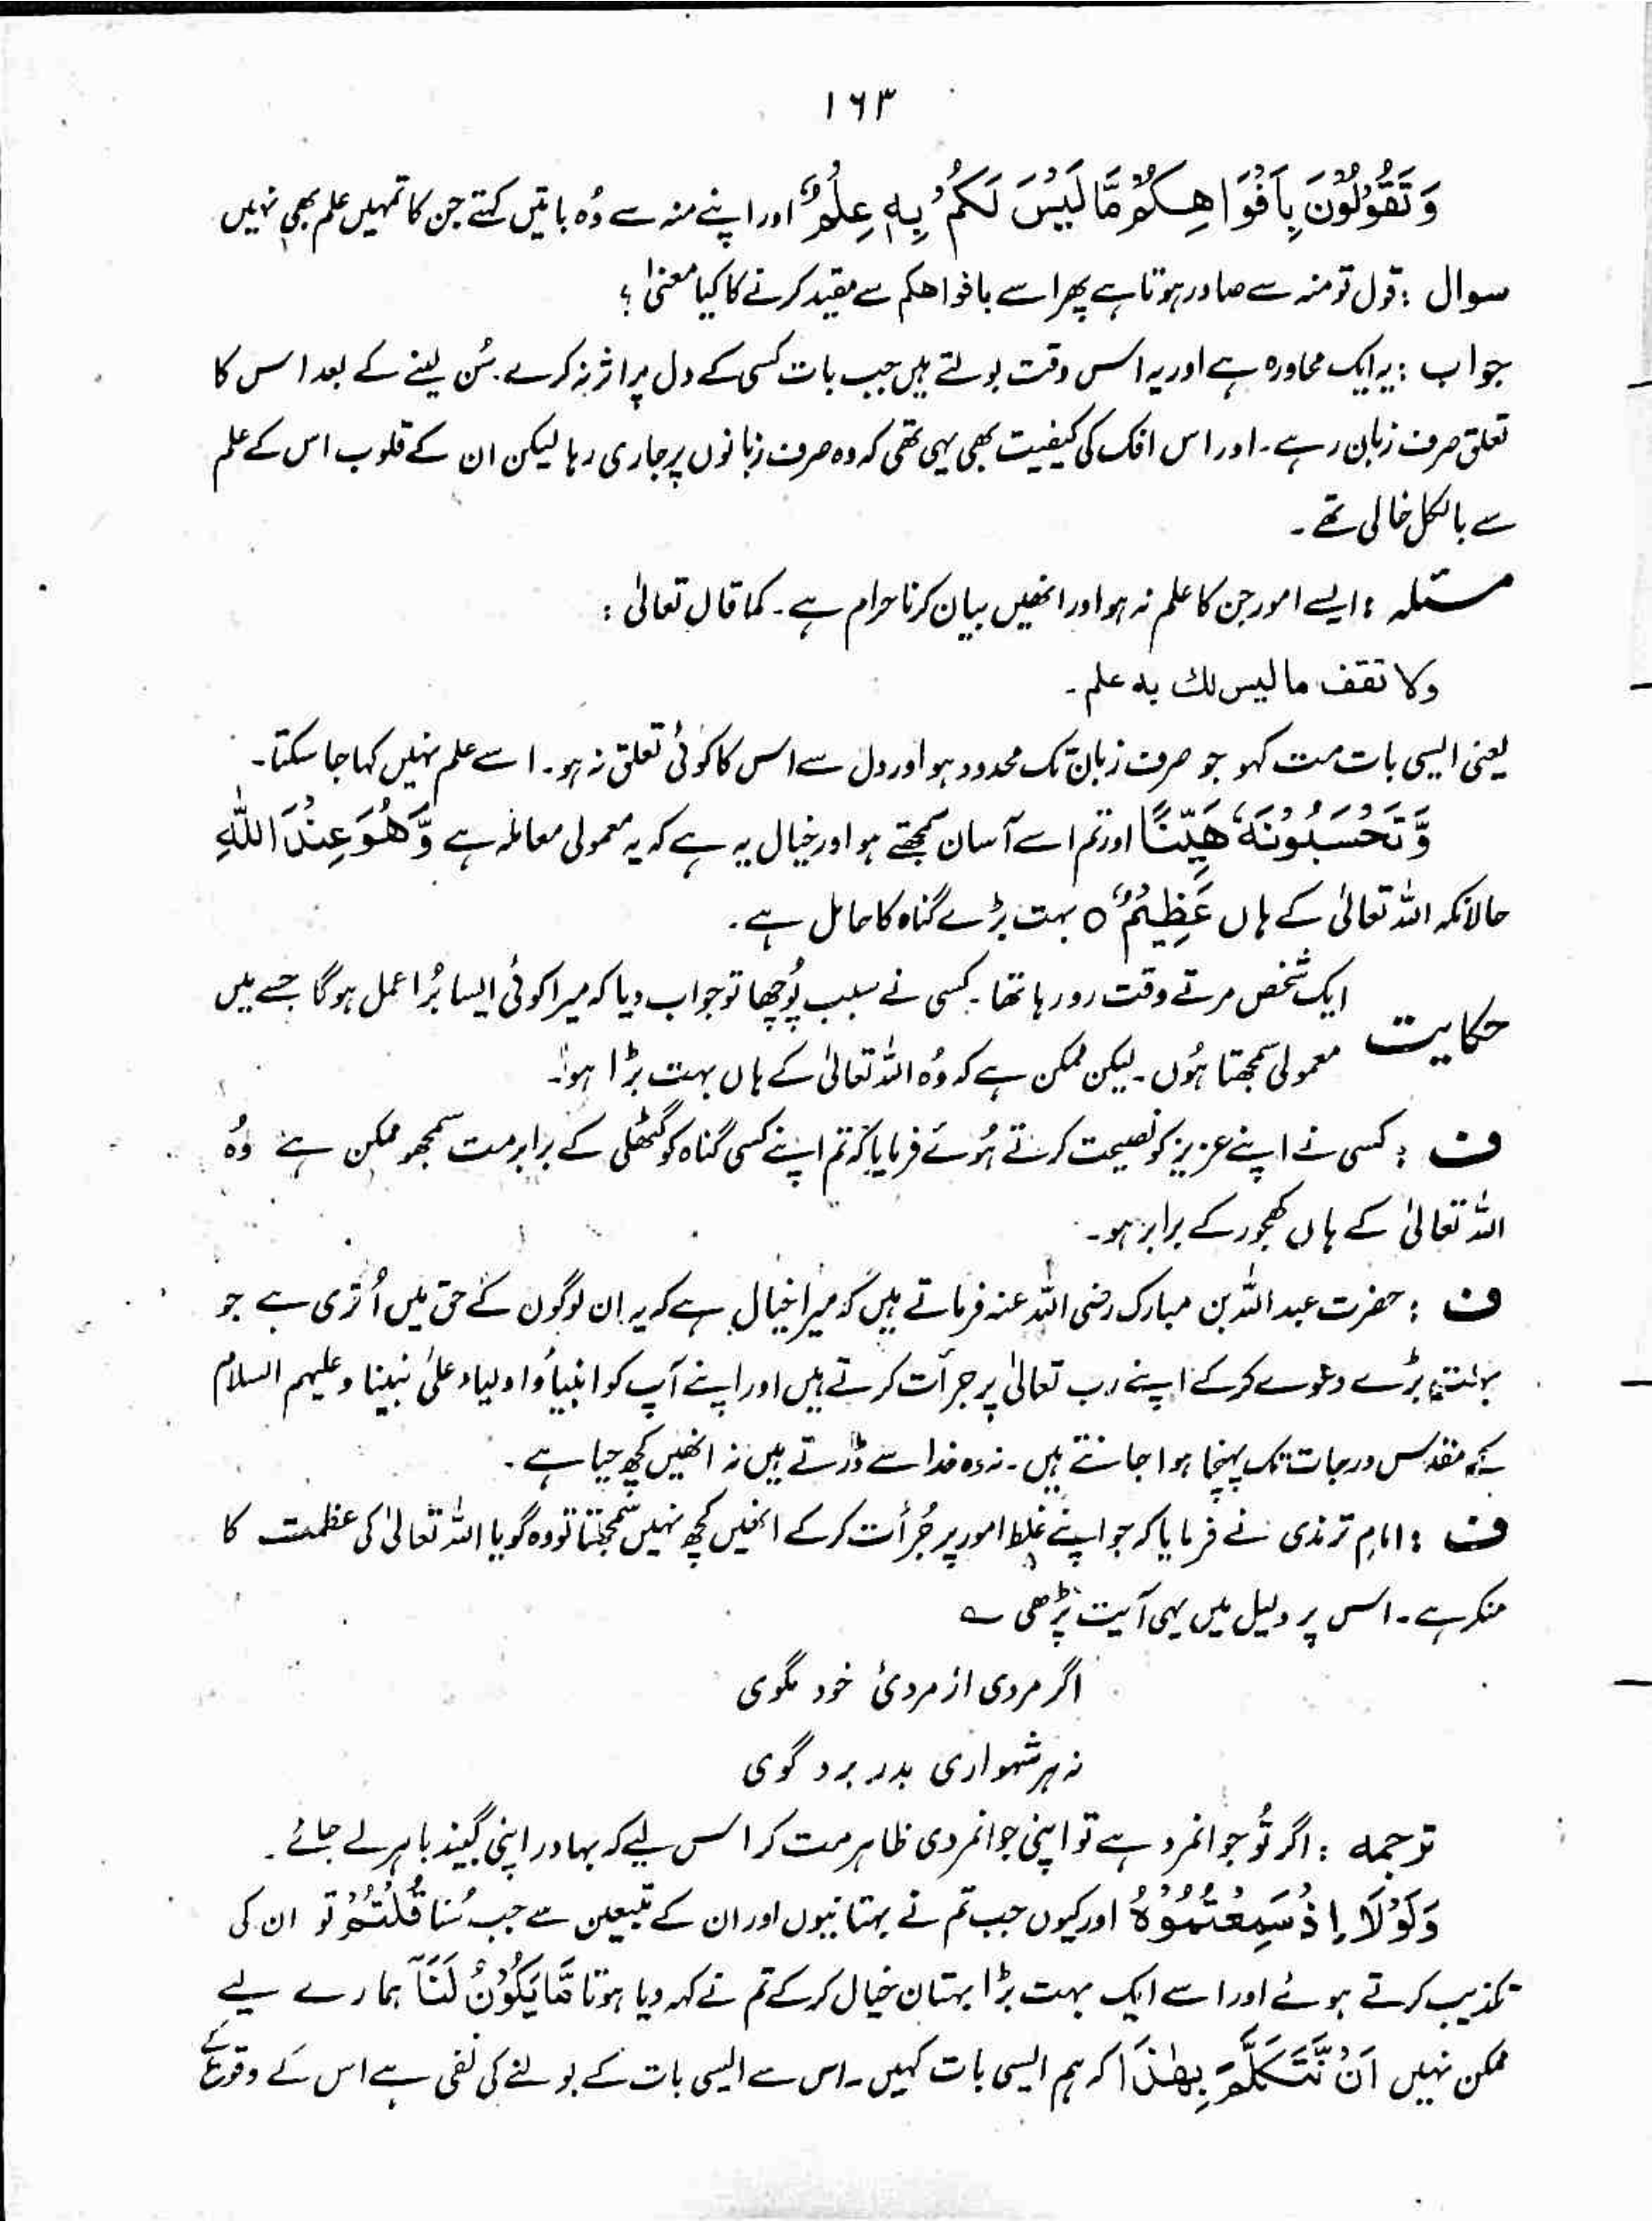 ۱۶۳
وَتَقُوْلُوْنَ بِاَفْوَاهِكُمْ مَّا لَيْسَ لَكُمْ بِهٖ عِلْمٌ اور اپنے منہ سے وُہ باتیں کہتے جن کا تمہیں علم بھی نہیں
سوال : قول تو منہ سے صادر ہوتا ہے پھر اسے بافواھکم سے مقید کرنے کا کیا معنیٰ؟
جواب : یہ ایک محاورہ ہے اور یہ اس وقت بولتے ہیں جب بات کسی کے دل پر اثر نہ کرے. سُن لینے کے بعد اس کا
تعلق صرف زبان رہے ۔ اور اس افک کی کیفیت بھی یہی تھی کہ وہ صرف زبانوں پر جاری رہا لیکن ان کے قلوب اس کے علم
سے بالکل خالی تھے ۔
مسئلہ : ایسے امور جن کا علم نہ ہو اور انھیں بیان کرنا حرام ہے ۔ کما قال تعالیٰ :
ولا تقف ما ليس لك به علم ۔
یعنی ایسی بات مت کہو جو صرف زبان تک محدود ہو اور دل سے اس کا کوئی تعلق نہ ہو ۔ اسے علم نہیں کہا جا سکتا ۔
وَّتَحْسَبُوْنَهٗ هَيِّنًا اور تم اسے آسان سمجھتے ہو اور خیال یہ ہے کہ یہ معمولی معاملہ ہے وَّهُوَ عِنْدَ اللّٰهِ
حالانکہ اللہ تعالیٰ کے ہاں عَظِيْمٌ ٥ بہت بڑے گناہ کا حامل ہے .
ایک شخص مرتے وقت رو رہا تھا ۔ کسی نے سبب پُوچھا تو جواب دیا کہ میرا کوئی ایسا بُرا عمل ہوگا جسے میں
حکایت معمولی سمجھتا ہُوں ۔ لیکن ممکن ہے کہ وُہ اللہ تعالیٰ کے ہاں بہت بڑا ہو۔
ف : کسی نے اپنے عزیز کو نصیحت کرتے ہُوئے فرمایا کہ تم اپنے کسی گناہ کو گٹھلی کے برابر مت سمجھو ممکن ہے وُہ
اللہ تعالیٰ کے ہاں کھجور کے برابر ہو ۔
ف : حضرت عبداللہ بن مبارک رضی اللہ عنہ فرماتے ہیں کہ میرا خیال ہے کہ یہ ان لوگوں کے حق میں اُتری ہے جو
بہت بڑے دعوے کرکے اپنے رب تعالیٰ پر جرأت کرتے ہیں اور اپنے آپ کو انبیاؑ و اولیاء علیٰ نبینا و علیہم السلام
کے مقدس درجات تک پہنچا ہوا جانتے ہیں ۔ نہ وہ خدا سے ڈرتے ہیں نہ انھیں کچھ حیا ہے .
ف : امام ترمذی نے فرمایا کہ جو اپنے غلط امور پر جُرأت کرکے انھیں کچھ نہیں سمجھتا تو وہ گویا اللہ تعالیٰ کی عظمت کا
منکر ہے ۔ اس پر دلیل میں یہی آیت پڑھی ؎
اگر مردی از مردیٔ خود مگوی
نہ ہر شہسواری بدر برد گوی
ترجمہ : اگر تُو جوانمرد ہے تو اپنی جوانمردی ظاہر مت کر اس لیے کہ بہادر اپنی گیند باہر لے جائے .
وَلَوْلَا اِذْ سَمِعْتُمُوْهُ اور کیوں جب تم نے بہتانیوں اور ان کے متبعین سے جب سُنا قُلْتُمْ تو ان کی
تکذیب کرتے ہوئے اور اسے ایک بہت بڑا بہتان خیال کرکے تم نے کہہ دیا ہوتا مَّا يَكُوْنُ لَنَآ ہمارے لیے
ممکن نہیں اَنْ نَّتَكَلَّمَ بِهٰذَا کہ ہم ایسی بات کہیں ۔ اس سے ایسی بات کے بولنے کی نفی ہے اس کے وقوع کے